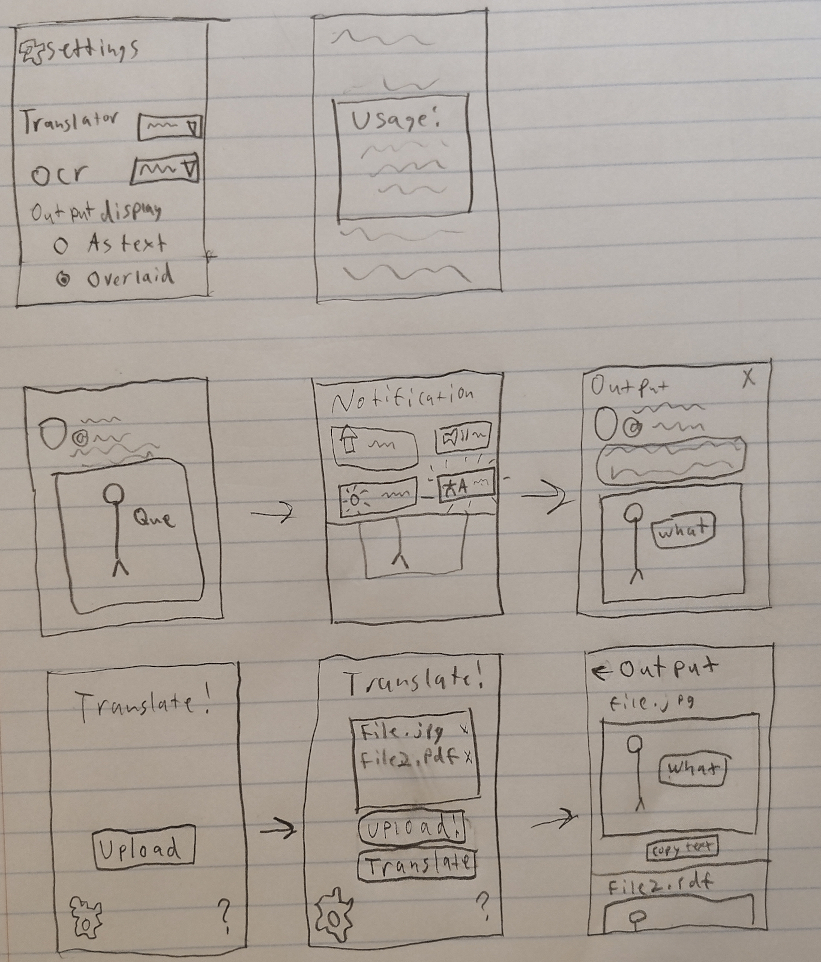 settings
Translator
OCr
Output display
As text
Overlaid
Usage:
Que
Notification
A
Output X
what
Translate!
Upload
?
Translate!
File.jpg x
File2.Pdf x
Upload!
Translate
?
← Output
File.jpg
what
copy text
File2.pdf